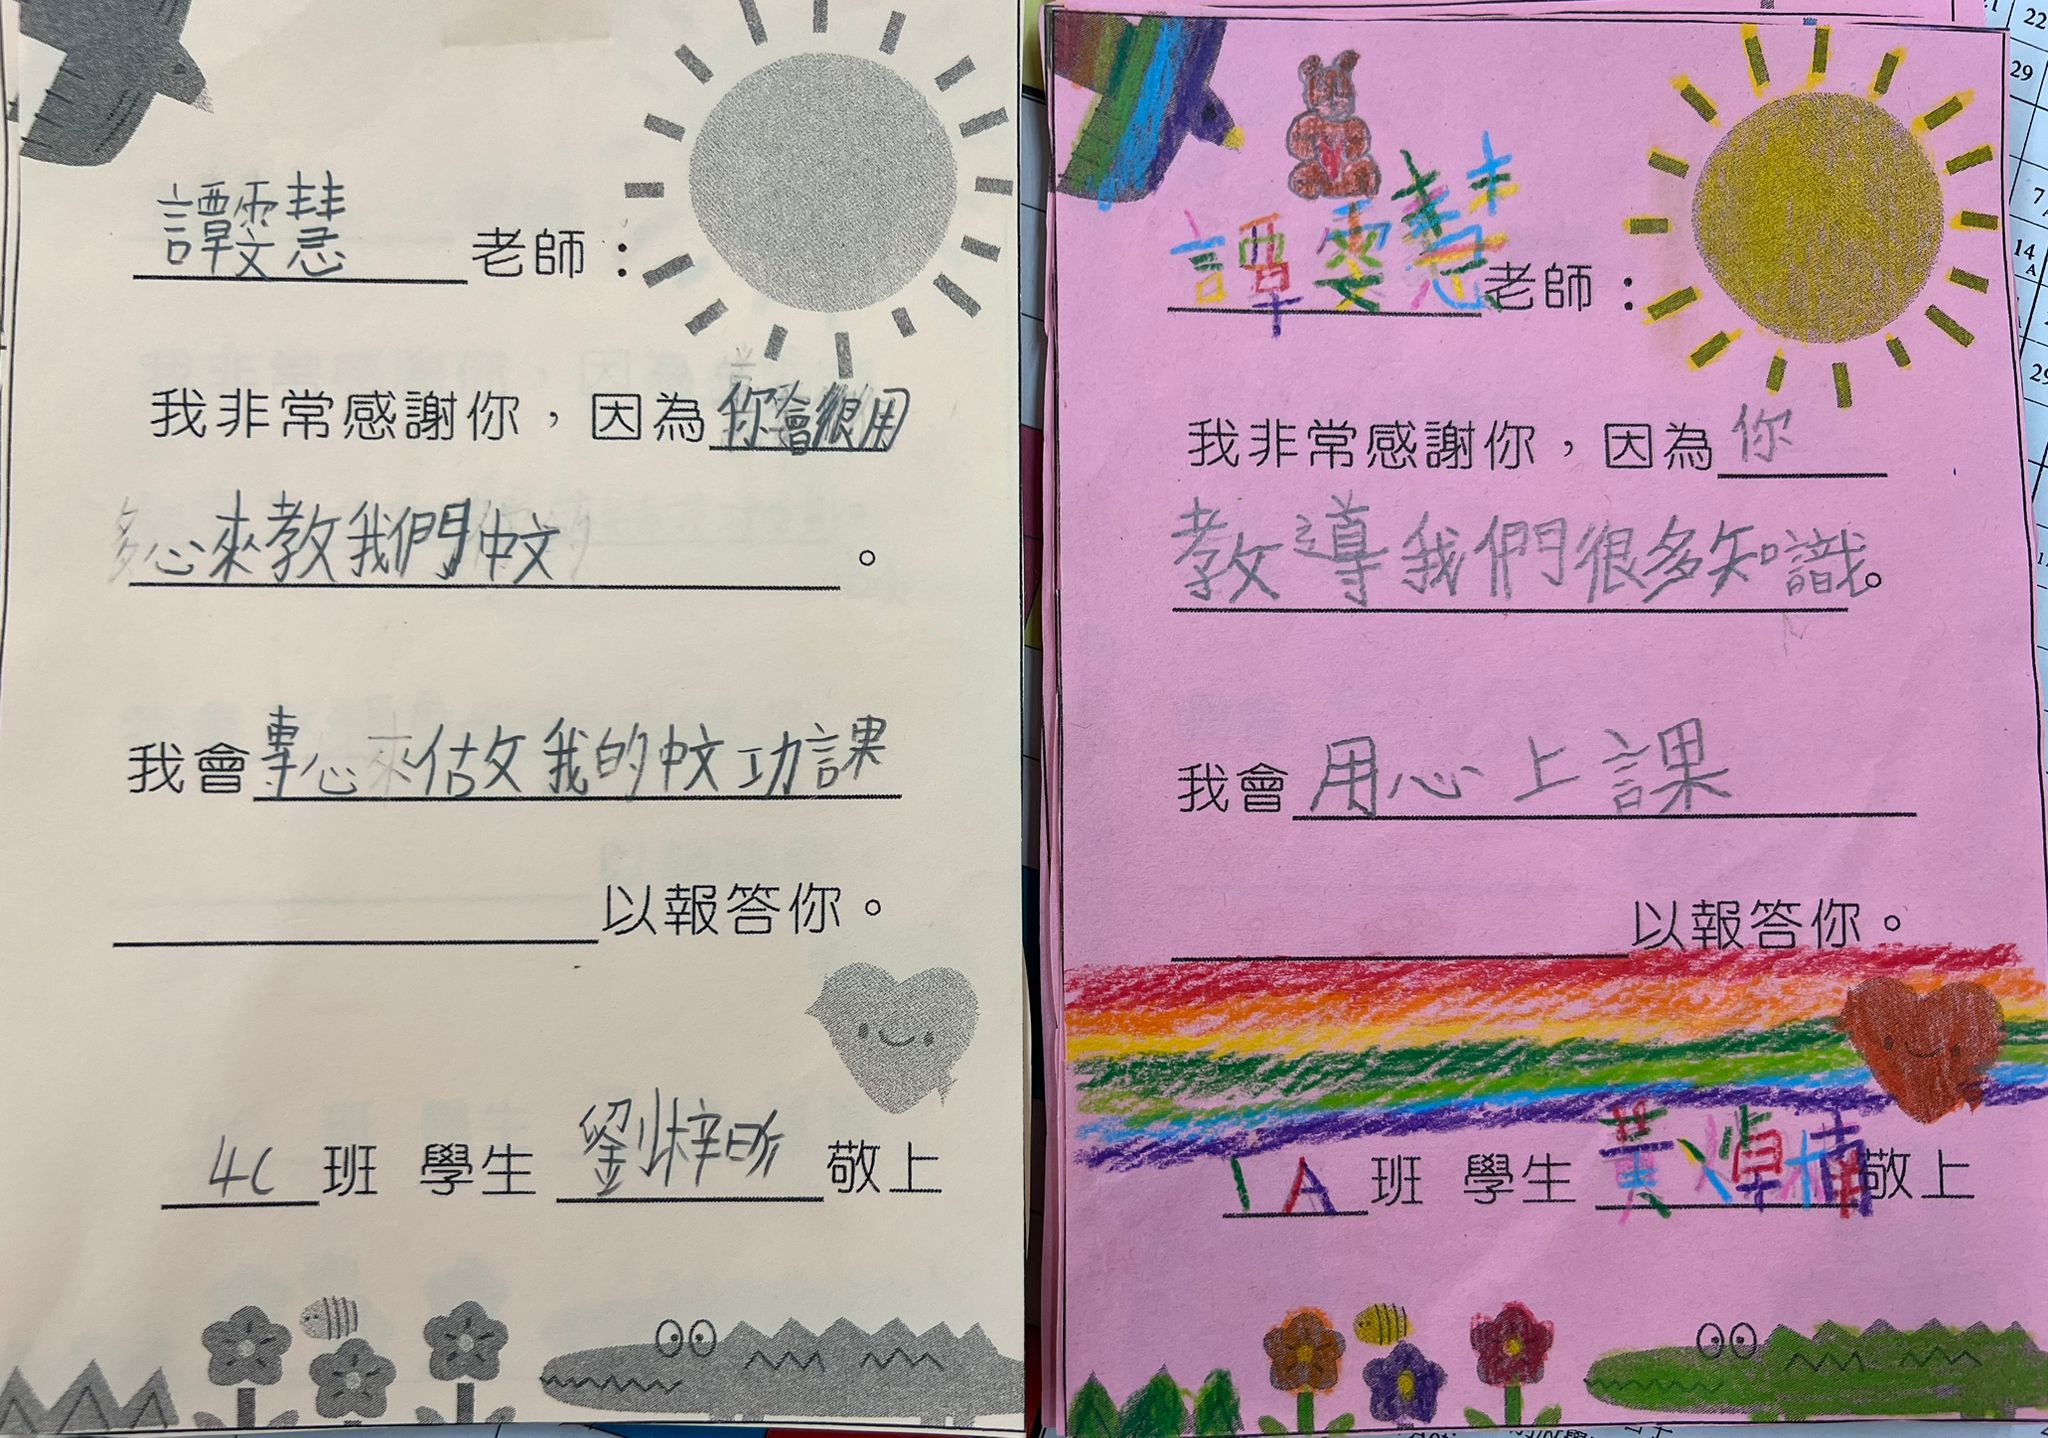 譚雯慧老師：
我非常感謝你，因為你會很用
心來教我們中文。
我會專心來做我的中文功課
以報答你。
4C班 學生 劉梓昕 敬上
譚雯慧老師：
我非常感謝你，因為你
教導我們很多知識。
我會用心上課
以報答你。
1A班 學生 黃焯楠 敬上
21
22
29
7
14
A
29